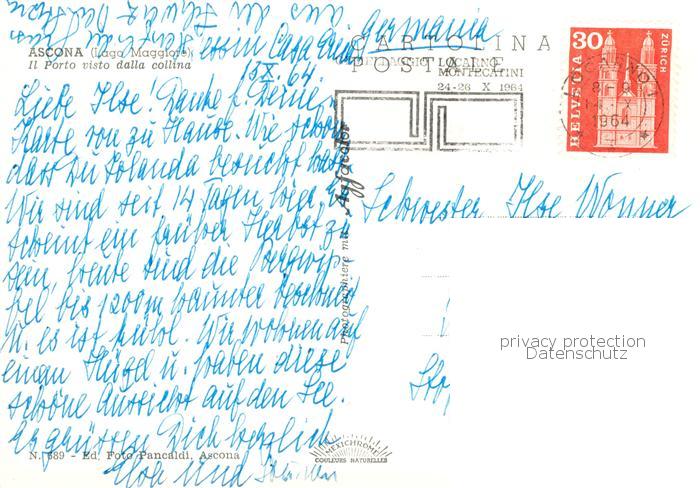 aus der Schweiz
essen Casa
ASCONA (Lago Maggiore)
Il Porto visto dalla collina
13.X.64.
Liebe Ilse! Danke f. Deine
Karte von zu Hause. Wie schön
dass Du Jolanda besucht hast
Wir sind seit 14 Tagen hier. Es
scheint ein früher Herbst zu
sein, heute sind die Berggip-
fel bis 1200m herunter beschneit
u. es ist kühl. Wir wohnen auf
einem Hügel u. haben diese
schöne Aussicht auf den See.
Es grüssen Dich herzlich
und
N. 689 - Ed. Foto Pancaldi, Ascona
Photographiere mit Agfacolor
MEXICHROME
COULEURS NATURELLES
Germania
CARTOLINA
POSTALE
LOCARNO
MONTECATINI
24-26 X 1964
HELVETIA
30
ZÜRICH
1964
Schwester Ilse Wonner
privacy protection
Datenschutz